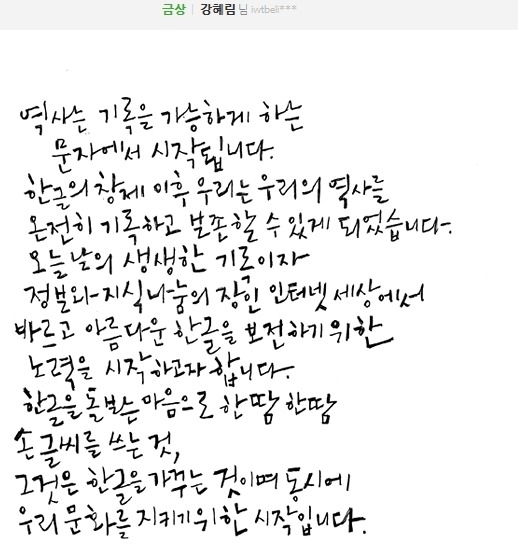 금상 | 강혜림 님 iwtbeli***
역사는 기록을 가능하게 하는
문자에서 시작됩니다.
한글의 창제 이후 우리는 우리의 역사를
온전히 기록하고 보존할 수 있게 되었습니다.
오늘날의 생생한 기록이자
정보와 지식나눔의 장인 인터넷 세상에서
바르고 아름다운 한글을 보전하기 위한
노력을 시작하고자 합니다.
한글을 돌보는 마음으로 한땀 한땀
손글씨를 쓰는 것,
그것은 한글을 가꾸는 것이며 동시에
우리 문화를 지키기 위한 시작입니다.